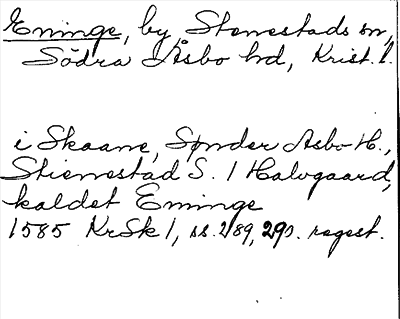 Eminge, by, Stenestads sn,
Södra Åsbo hd, Krist. l.
i Skaane, Sønder Asbo H.,
Stienestad S. 1 Halvgaard,
kaldet Eminge
1585 KrSk 1, ss. 289, 290. regest.